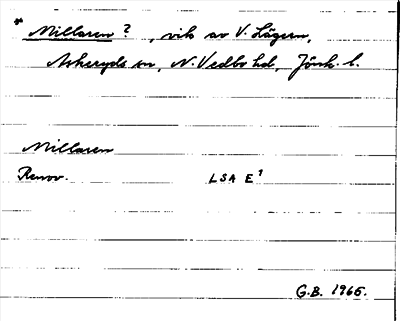 * Millaren ? , vik av V. Lägern,
Askeryds sn, N. Vedbo hd, Jönk. l.
Millaren
Renov. LSA E¹
G.B. 1965.